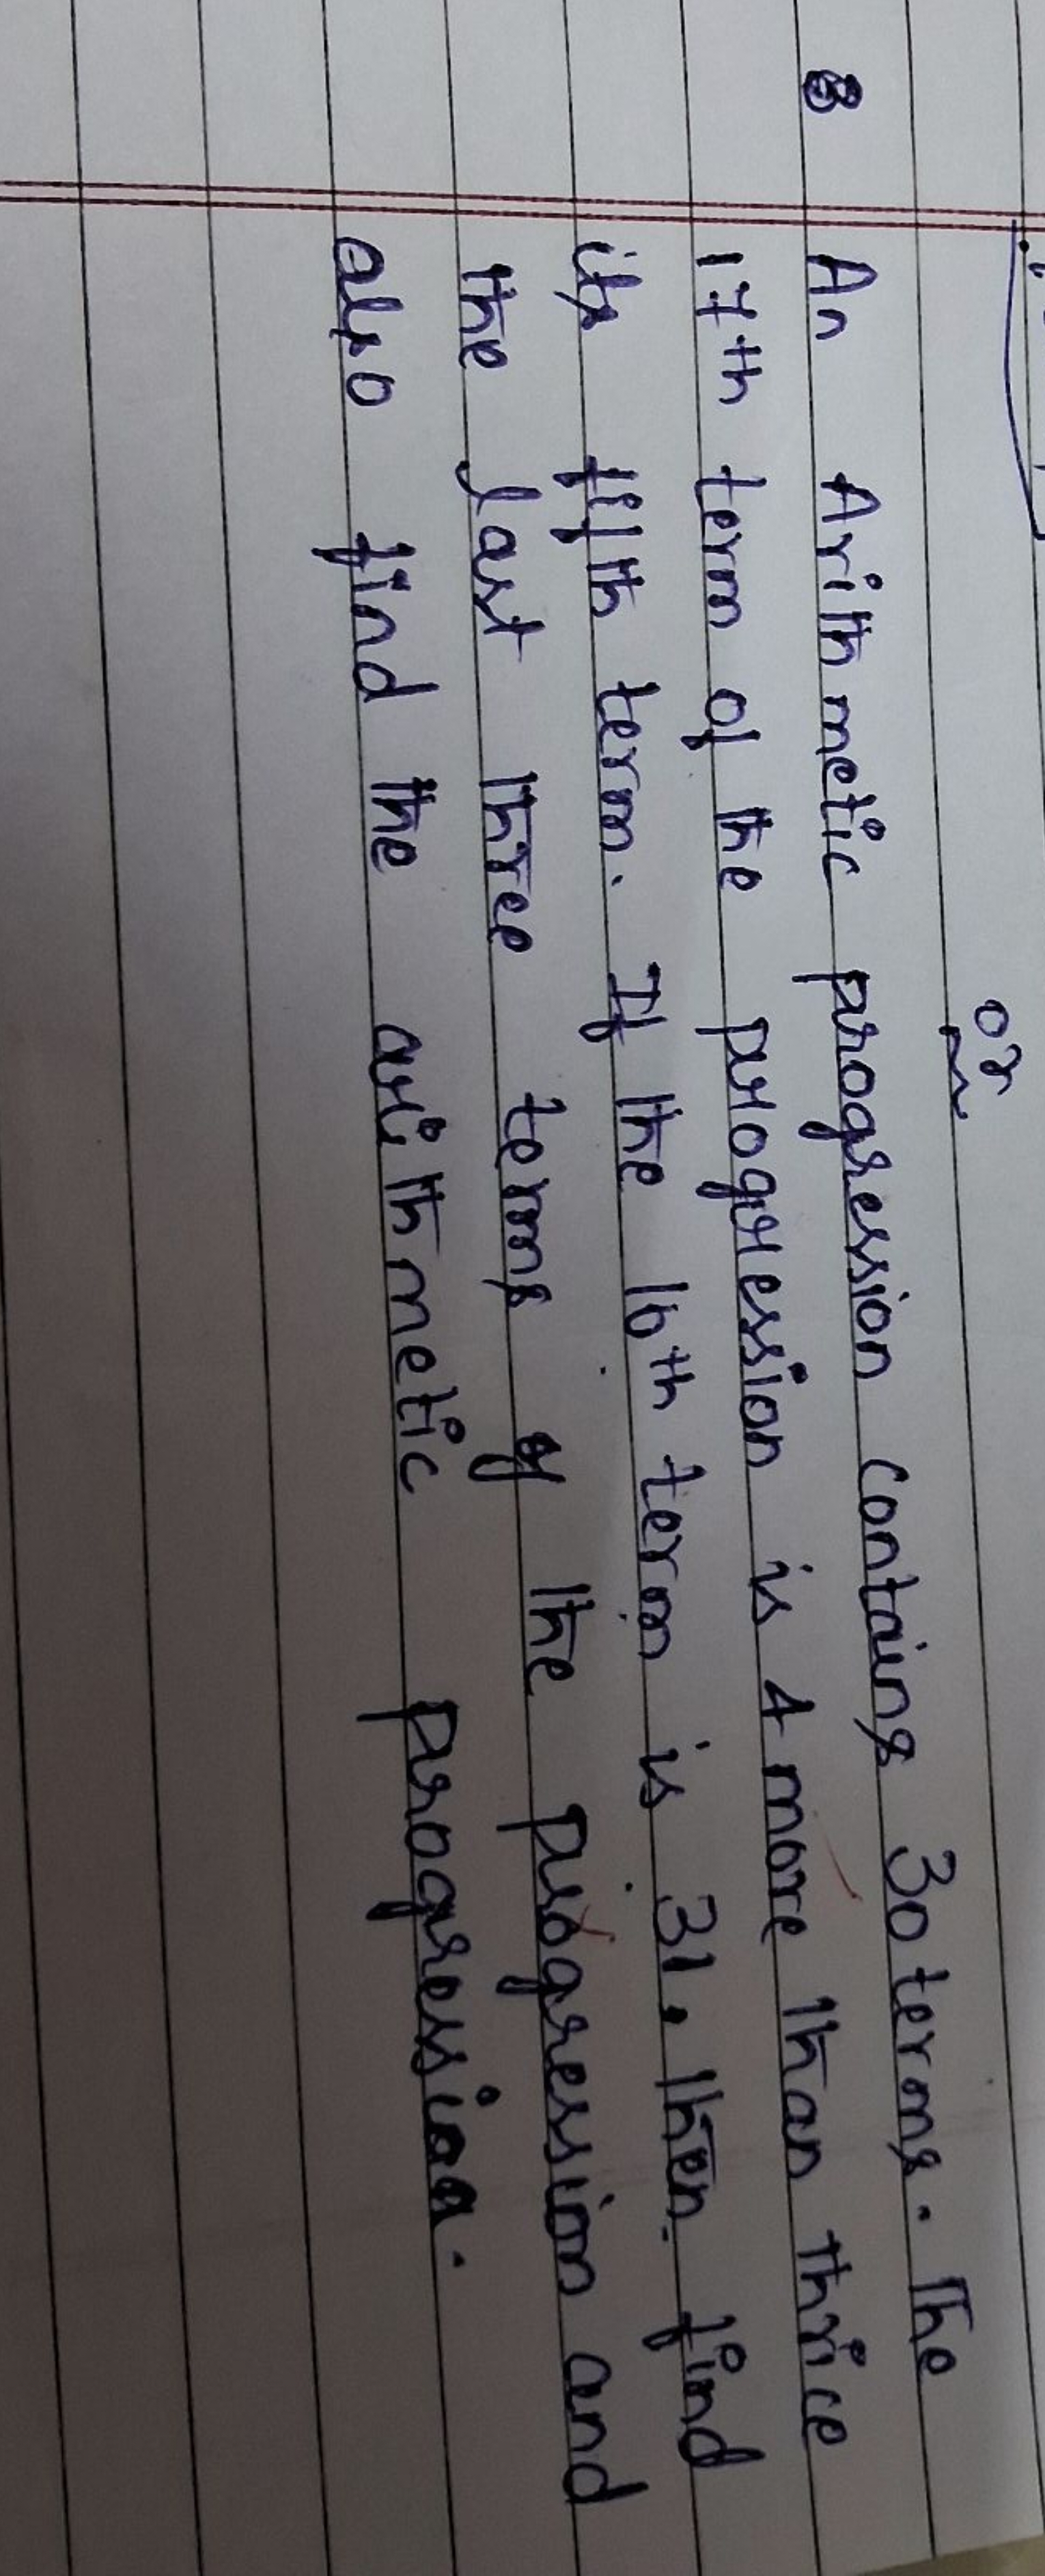 or
8 An Arithmetic progression contains 30 terms. The
17th term of the progression is 4 more than thrice
its fifth term. If the 10th term is 31, then find
the last three terms of the progression and
also find the arithmetic progression.